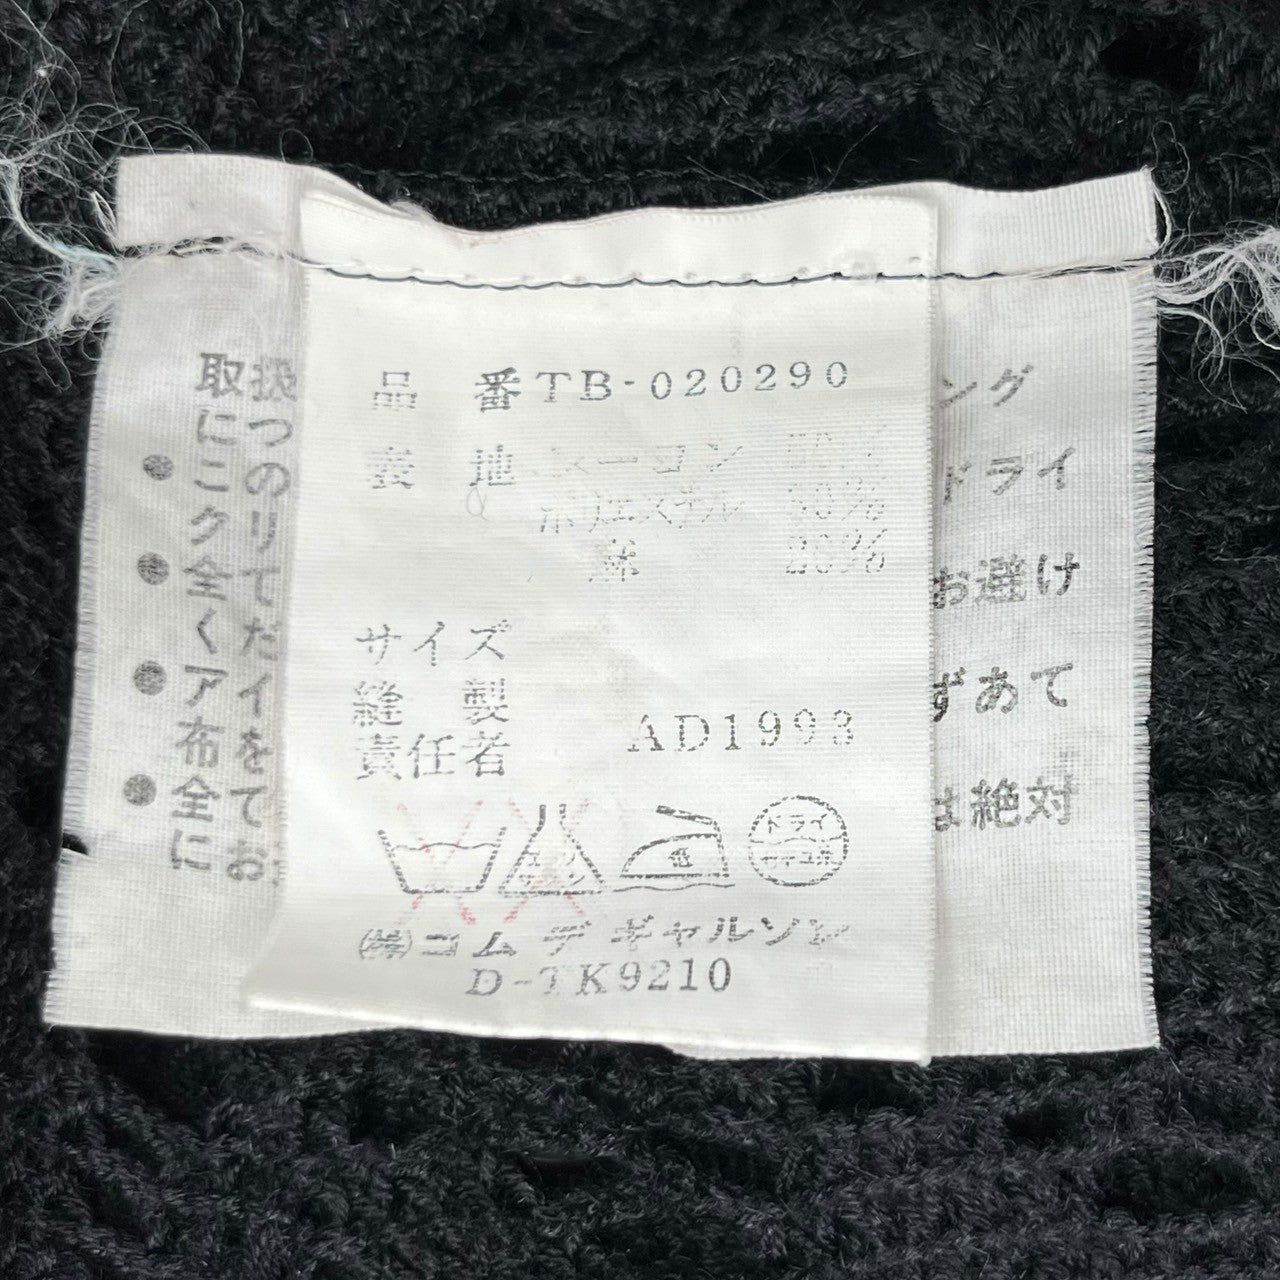 品 番 TB-020290
表 地 レーヨン 50%
ポリエステル 30%
麻 20%
サイズ
縫 製
責任者 AD1993
低
ドライ
㈱コム デ ギャルソン
D-TK9210
扱
取
つ
に
のリ
こ
ク
てだ
全く
イを
ア布
てお
全に
ング
ドライ
お避け
ずあて
は絶対